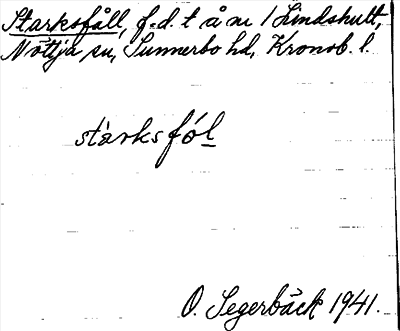 Starksfåll, f.d. t å nr 1 Lindshult,
Nöttja sn, Sunnerbo hd, Kronob. l.
stárksfó̱l
O. Segerbäck 1941.